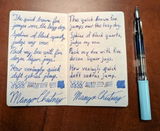 The quick brown fox
jumps over the lazy dog.
Sphinx of black quartz,
judge my vow.
Pack my box with five
dozen liquor jugs.
How vexingly quick
daft zebras jump.
The quick brown fox
jumps over the lazy dog.
Sphinx of black quartz,
judge my vow.
Pack my box with five
dozen liquor jugs.
How vexingly quick
daft zebras jump.